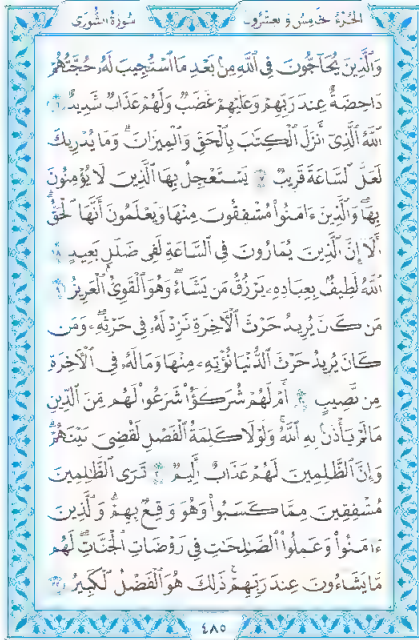 الجزء الخامس والعشرون
سورة الشورى
وَالَّذِينَ يُحَاجُّونَ فِي اللَّهِ مِنْ بَعْدِ مَا اسْتُجِيبَ لَهُ حُجَّتُهُمْ
دَاحِضَةٌ عِندَ رَبِّهِمْ وَعَلَيْهِمْ غَضَبٌ وَلَهُمْ عَذَابٌ شَدِيدٌ ١٦
اللَّهُ الَّذِي أَنزَلَ الْكِتَٰبَ بِالْحَقِّ وَالْمِيزَانَ وَمَا يُدْرِيكَ
لَعَلَّ السَّاعَةَ قَرِيبٌ ١٧ يَسْتَعْجِلُ بِهَا الَّذِينَ لَا يُؤْمِنُونَ
بِهَا وَالَّذِينَ ءَامَنُوا مُشْفِقُونَ مِنْهَا وَيَعْلَمُونَ أَنَّهَا الْحَقُّ
أَلَا إِنَّ الَّذِينَ يُمَارُونَ فِي السَّاعَةِ لَفِي ضَلَٰلٍ بَعِيدٍ ١٨
اللَّهُ لَطِيفٌ بِعِبَادِهِ يَرْزُقُ مَن يَشَاءُ وَهُوَ الْقَوِيُّ الْعَزِيزُ ١٩
مَن كَانَ يُرِيدُ حَرْثَ الْآخِرَةِ نَزِدْ لَهُ فِي حَرْثِهِ وَمَن
كَانَ يُرِيدُ حَرْثَ الدُّنْيَا نُؤْتِهِ مِنْهَا وَمَا لَهُ فِي الْآخِرَةِ
مِن نَّصِيبٍ ٢٠ أَمْ لَهُمْ شُرَكَٰٓؤُا شَرَعُوا لَهُم مِّنَ الدِّينِ
مَا لَمْ يَأْذَن بِهِ اللَّهُ وَلَوْلَا كَلِمَةُ الْفَصْلِ لَقُضِيَ بَيْنَهُمْ
وَإِنَّ الظَّٰلِمِينَ لَهُمْ عَذَابٌ أَلِيمٌ ٢١ تَرَى الظَّٰلِمِينَ
مُشْفِقِينَ مِمَّا كَسَبُوا وَهُوَ وَاقِعٌ بِهِمْ وَالَّذِينَ
ءَامَنُوا وَعَمِلُوا الصَّٰلِحَٰتِ فِي رَوْضَاتِ الْجَنَّاتِ لَهُم
مَّا يَشَاءُونَ عِندَ رَبِّهِمْ ذَٰلِكَ هُوَ الْفَضْلُ الْكَبِيرُ ٢٢
٤٨٥